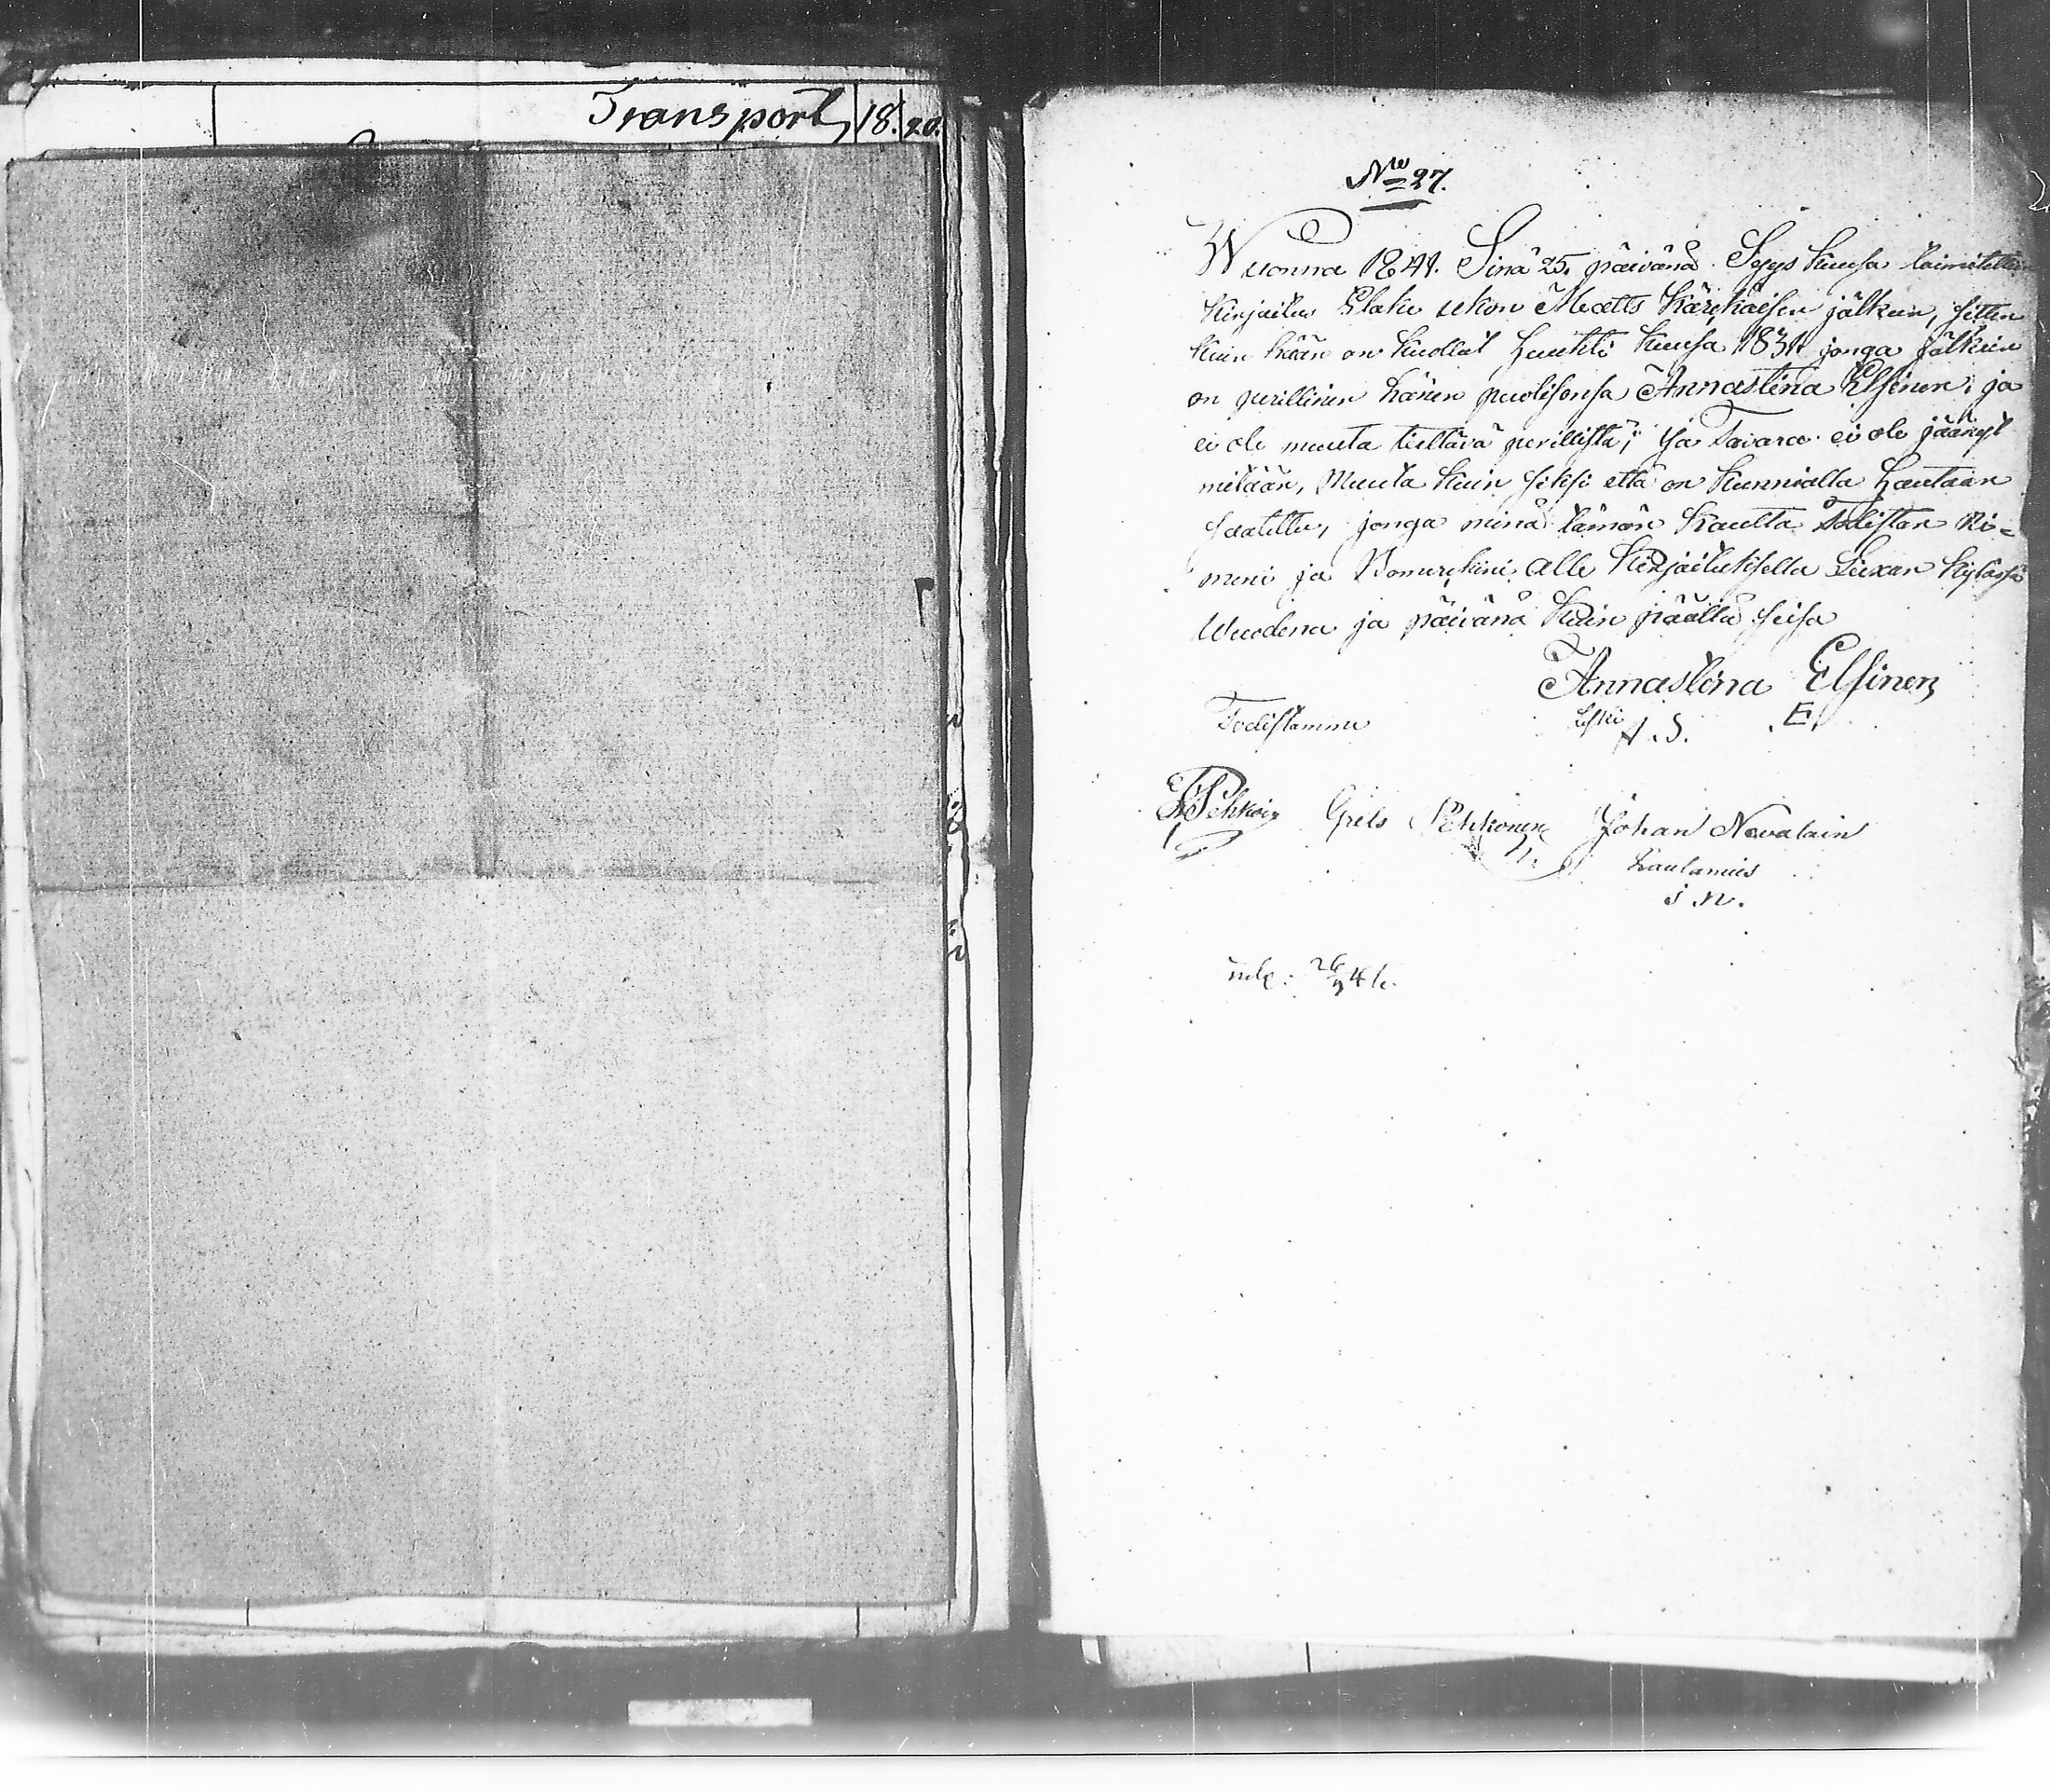 Transport, 18. 20.
No 27.
Wuonna 1841. Sinä 25. päivänä Syys Kuusa toimitettin
Kirjoitus Matts Kärkkäisen jälkeen, sitten
Kuin hään on Kuollut Huuhti Kuusa 1831 jonga jälkein
on perillinen hänen puolisonsa Annastina Elsinen; ja
ei ole muuta tiettävä perillistä; Ja Tavara ei ole jäänyt
mitään, Muuta Kuin siksi että on Kunnialla Hautaan
saatettu, jonga minä tämän Kautta Todistan Ni-
meni ja Bomerkini alle Kirjoituksella Kylässä
Wuodena ja päivänä Kuin päällä seisa
Annastina Elsinen
Leski A.S. E.
Todistamme
Grels Pehkonen Johan Nevalain
Lautamies
J N.